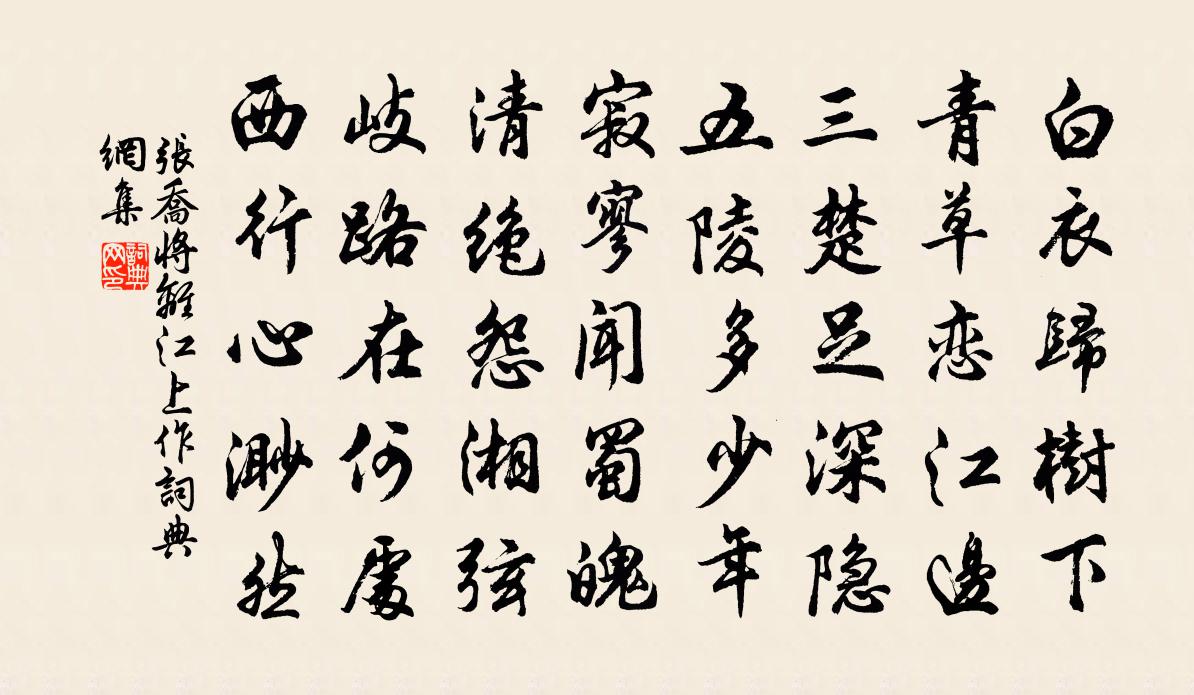 白衣歸樹下
青草恋江邊
三楚足深隐
五陵多少年
寂寥聞蜀魄
清绝怨湘弦
岐路在何處
西行心渺然
張喬將離江上作詞典
網集
詞典网印